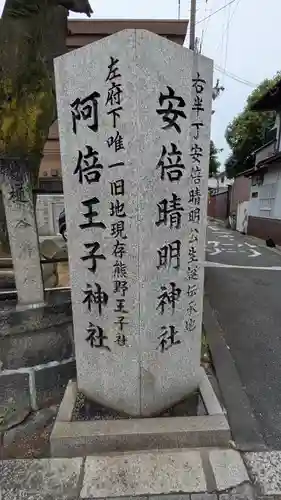 右半丁 安倍晴明公生誕伝承地
安倍晴明神社
左府下唯一旧地現存熊野王子社
阿倍王子神社